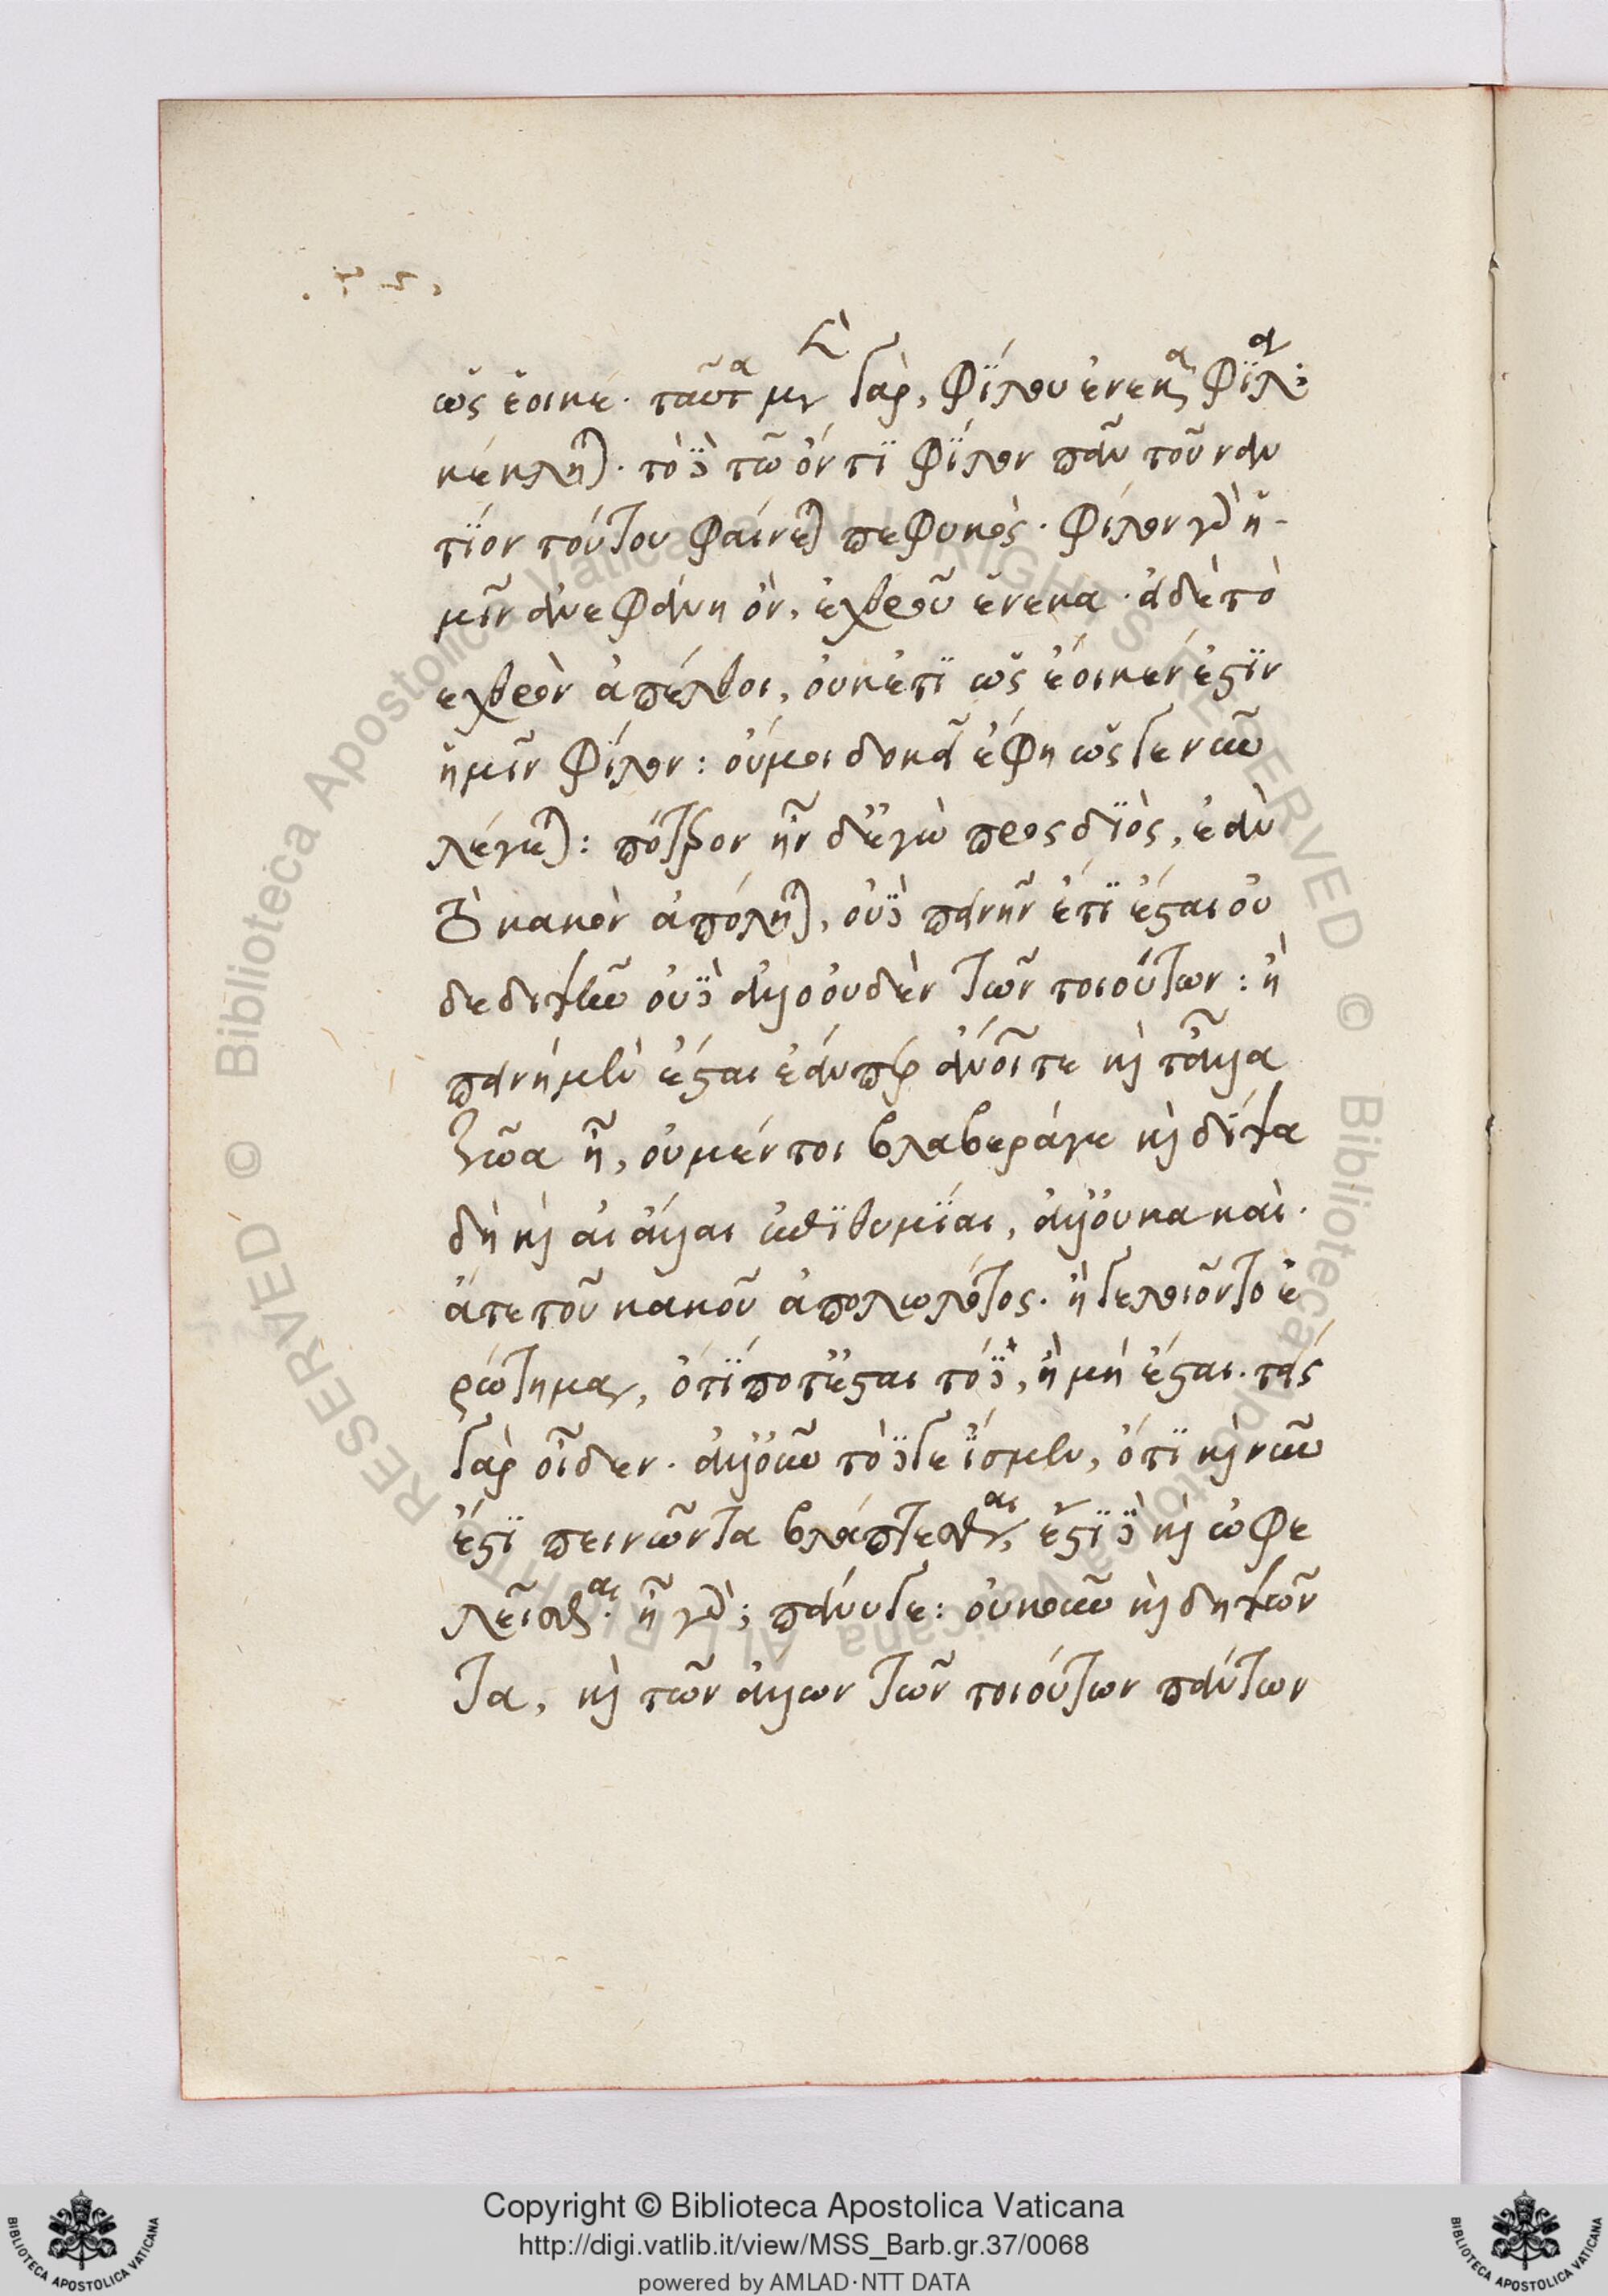 ὡς ἔοικε· ταῦτα μὲν γὰρ, φίλου ἕνεκα φίλα
κέκληται· τὸ δὲ τῶ ὄντι φίλον πᾶν τοὐναν
τίον τούτου φαίνεται πεφυκός· φίλον γὰρ ἡ-
μῖν ἀνεφάνη ὂν, ἐχθροῦ ἕνεκα· ἁ δὲ τὸ
ἐχθρὸν ἀπέλθοι, οὐκέτι ὡς ἔοικεν ἐστὶν
ἡμῖν φίλον: οὔ μοι δοκεῖ ἔφη ὥς γε νῦν
λέγεται: πότερον ἦν δ' ἐγὼ πρὸς διὸς, ἐὰν
τὸ κακὸν ἀπόληται, οὐδὲ πεινῆν ἔτι ἔσται οὐ
δὲ διψῆν οὐδὲ ἄλλο οὐδὲν τῶν τοιούτων: ἢ
πείνη μὲν ἔσται ἐάνπερ ἄνοί τε καὶ τἆλλα
ζῶα ἦ, οὐ μέντοι βλαβερά γε καὶ δίψα
δὴ καὶ αἱ ἄλλαι ἐπιθυμίαι, ἀλλ' οὐ κακαὶ·
ἅτε τοῦ κακοῦ ἀπολωλότος· ἢ γελοῖον τὸ ἐ
ρώτημα, ὅτί ποτ' ἔσται τότε, ἢ μὴ ἔσται· τίς
γὰρ οἶδεν· ἀλλ' οὖν τὸ δέ γε ἴσμεν, ὅτι καὶ νῦν
ἔστι πεινῶντα βλάπτεσθαι, ἔστι δὲ καὶ ὠφε
λεῖσθαι· ἢ γὰρ; πάνυ γε: οὐκοῦν καὶ διψῶν
τα, καὶ τῶν ἄλλων τῶν τοιούτων πάντων
Copyright © Biblioteca Apostolica Vaticana
http://digi.vatlib.it/view/MSS_Barb.gr.37/0068
powered by AMLAD·NTT DATA